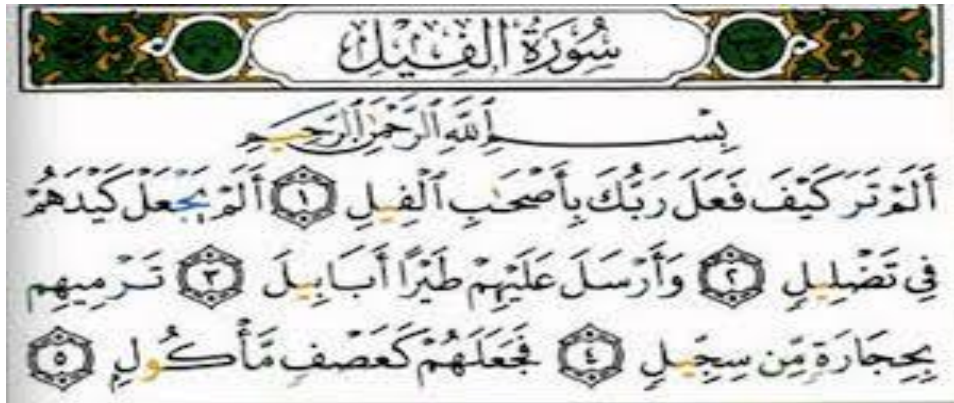 سُورَةُ الْفِيلِ
بِسْمِ ٱللَّهِ ٱلرَّحْمَٰنِ ٱلرَّحِيمِ
أَلَمْ تَرَ كَيْفَ فَعَلَ رَبُّكَ بِأَصْحَٰبِ ٱلْفِيلِ ١ أَلَمْ يَجْعَلْ كَيْدَهُمْ
فِى تَضْلِيلٍ ٢ وَأَرْسَلَ عَلَيْهِمْ طَيْرًا أَبَابِيلَ ٣ تَرْمِيهِم
بِحِجَارَةٍ مِّن سِجِّيلٍ ٤ فَجَعَلَهُمْ كَعَصْفٍ مَّأْكُولٍ ٥